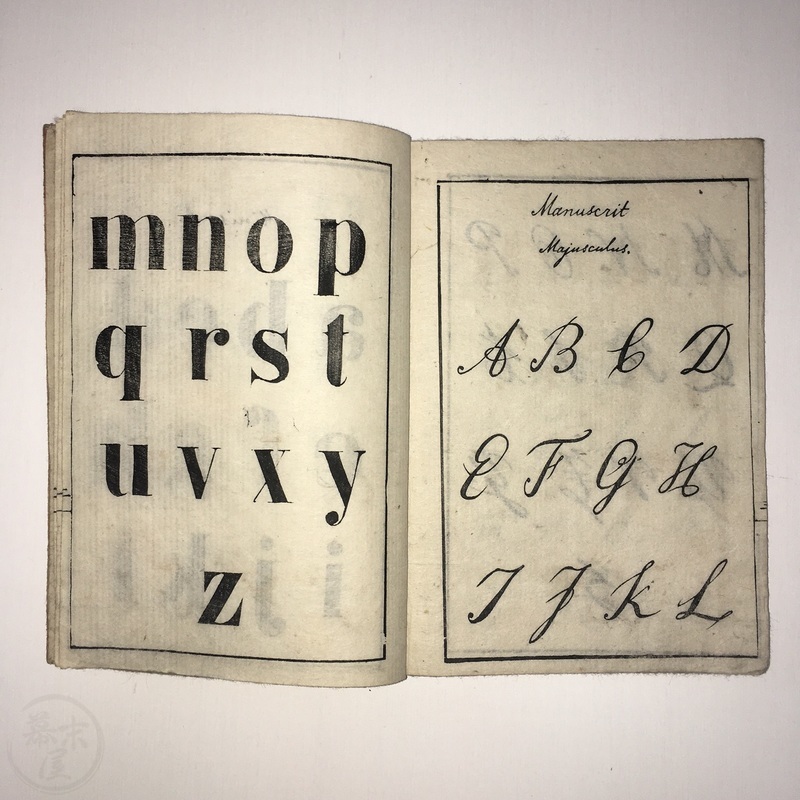 m n o p
q r s t
u v x y
z
Manuscrit
Majusculus.
A B C D
E F G H
I J K L
幕末屋